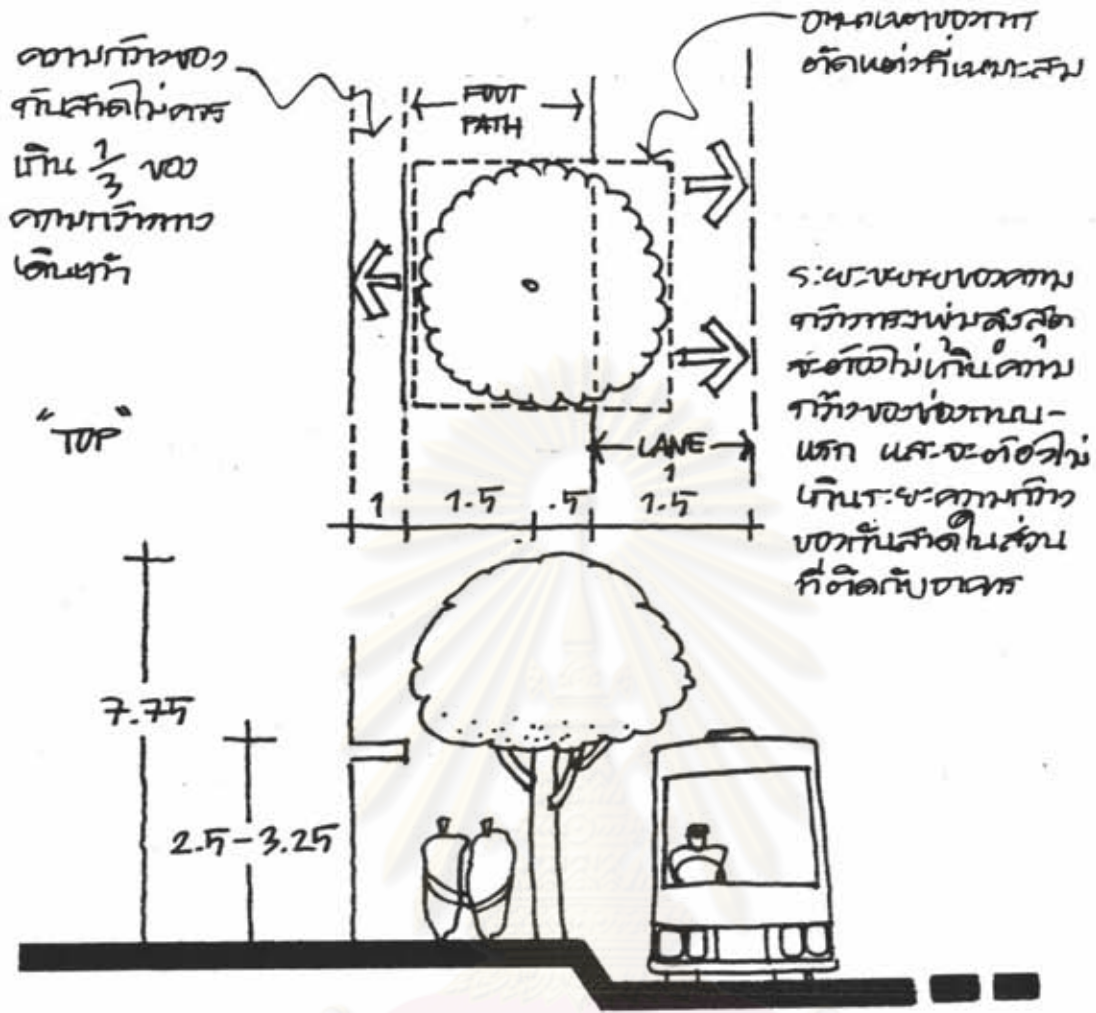 ความกว้างของ
กันสาดไม่ควร
เกิน 1/3 ของ
ความกว้างทาง
เดินเท้า
FOOT
PATH
อาณาเขตของการ
ตัดแต่งที่เหมาะสม
ระยะขยายของความ
กว้างทรงพุ่มสูงสุด
จะต้องไม่เกินความ
กว้างของช่องถนน-
แรก และจะต้องไม่
เกินระยะความกว้าง
ของกันสาดในส่วน
ที่ติดกับอาคาร
"TOP"
LANE
1 1.5 .5 1.5
7.75
2.5-3.25